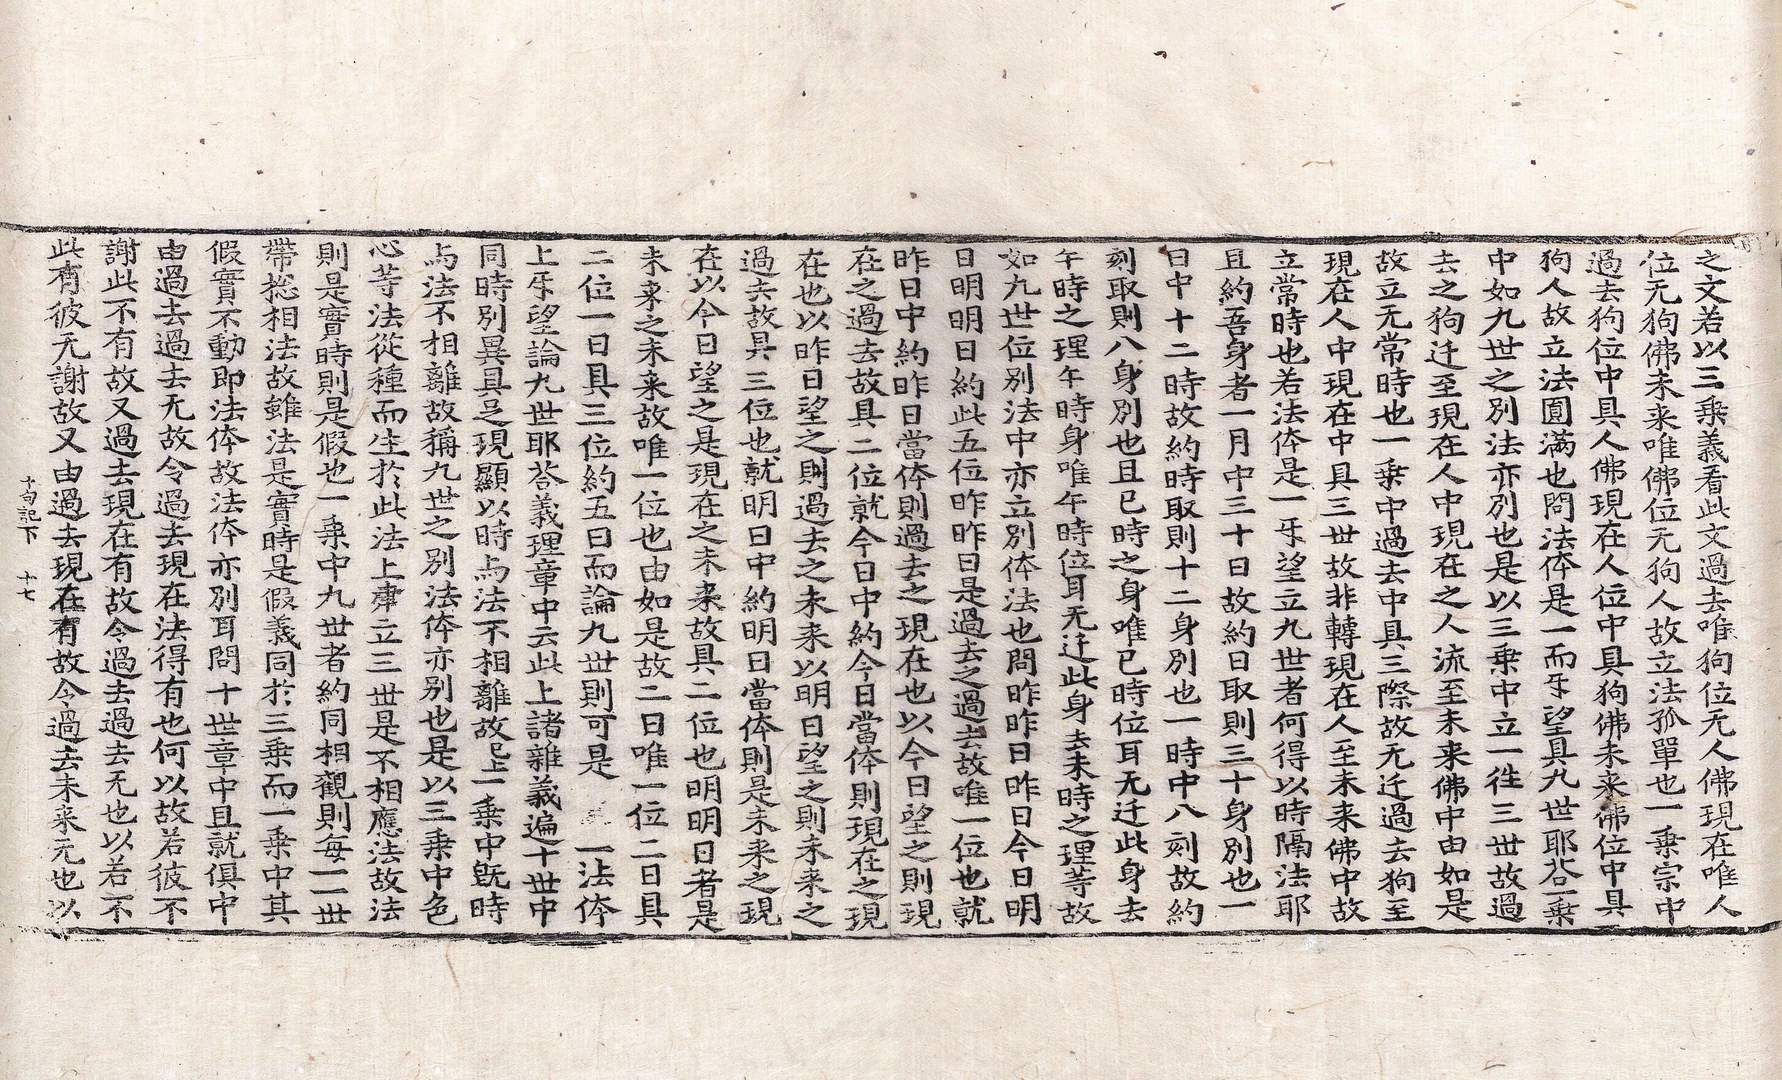 之文若以三乗義看此文過去唯狗位无人佛現在唯人
位无狗佛未来唯佛位无狗人故立法孤單也一乗宗中
過去狗位中具人佛現在人位中具狗佛未来佛位中具
狗人故立法圎滿也問法体是一而㸦望具九世耶荅一乗
中如九世之别法亦别也是以三乗中立一徃三世故過
去之狗迁至現在人中現在之人流至未来佛中由如是
故立无常時也一乗中過去中具三際故无迁過去狗至
現在人中現在中具三世故非轉現在人至未来佛中故
立常時也若法体是一㸦望立九世者何得以時隔法耶
且約吾身者一月中三十日故約日取則三十身别也一
日中十二時故約時取則十二身别也一時中八刻故約
刻取則八身别也且巳時之身唯巳時位耳无迁此身去
午時之理午時身唯午時位耳无迁此身去未時之理等故
如九世位别法中亦立别体法也問昨昨日昨日今日明
日明明日約此五位昨昨日是過去之過去故唯一位也就
昨日中約昨日當体則過去之現在也以今日望之則現
在之過去故具二位就今日中約今日當体則現在之現
在也以昨日望之則過去之未来以明日望之則未来之
過去故具三位也就明日中約明日當体則是未来之現
在以今日望之是現在之未来故具二位也明明日者是
未来之未来故唯一位也由如是故二日唯一位二日具
二位一日具三位約五日而論九世則可是一法体
上㸦望論九世耶荅義理章中云此上諸雜義遍十世中
同時别異具足現顯以時与法不相離故已上一乗中既時
与法不相離故稱九世之别法体亦别也是以三乗中色
心等法從種而生於此法上聿立三世是不相應法故法
則是實時則是假也一乗中九世者約同相觀則每一一世
帶捴相法故雖法是實時是假義同於三乗而一乗中其
假實不動即法体故法体亦别耳問十世章中且就俱中
由過去過去无故令過去現在法得有也何以故若彼不
謝此不有故又過去現在有故令過去過去无也以若不
此有彼无謝故又由過去現在有故令過去未来无也以
十句記下 十七